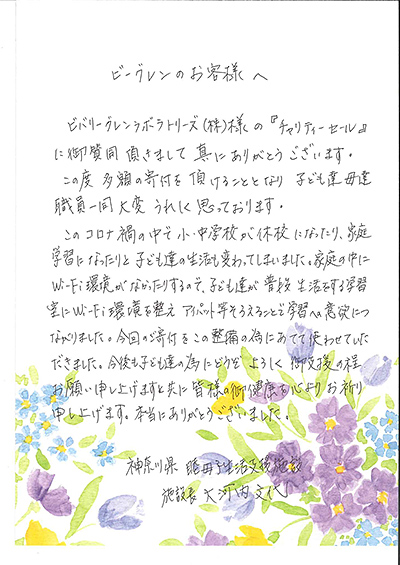 ビーグレンのお客様へ
ビバリーグレンラボラトリーズ(株)様の『チャリティーセール』
に御賛同頂きまして真にありがとうございます。
この度多額の寄付を頂けることとなり子ども達母達
職員一同大変うれしく思っております。
このコロナ禍の中で小・中学校が休校になったり、家庭
学習になったりと子ども達の生活も変わってしまいました。家庭の中に
Wi-Fi環境がなかったりするので、子ども達が普段生活をする学習
室にWi-Fi環境を整えアイパット等そろえることで学習への意欲につ
ながりました。今回のご寄付をこの整備の為にあてて使わせていた
だきました。今後も子ども達の為にどうぞよろしく御支援の程
お願い申し上げますと共に皆様の御健康を心よりお祈り
申し上げます。本当にありがとうございました。
神奈川県 母子生活支援施設
施設長 大河内 文代